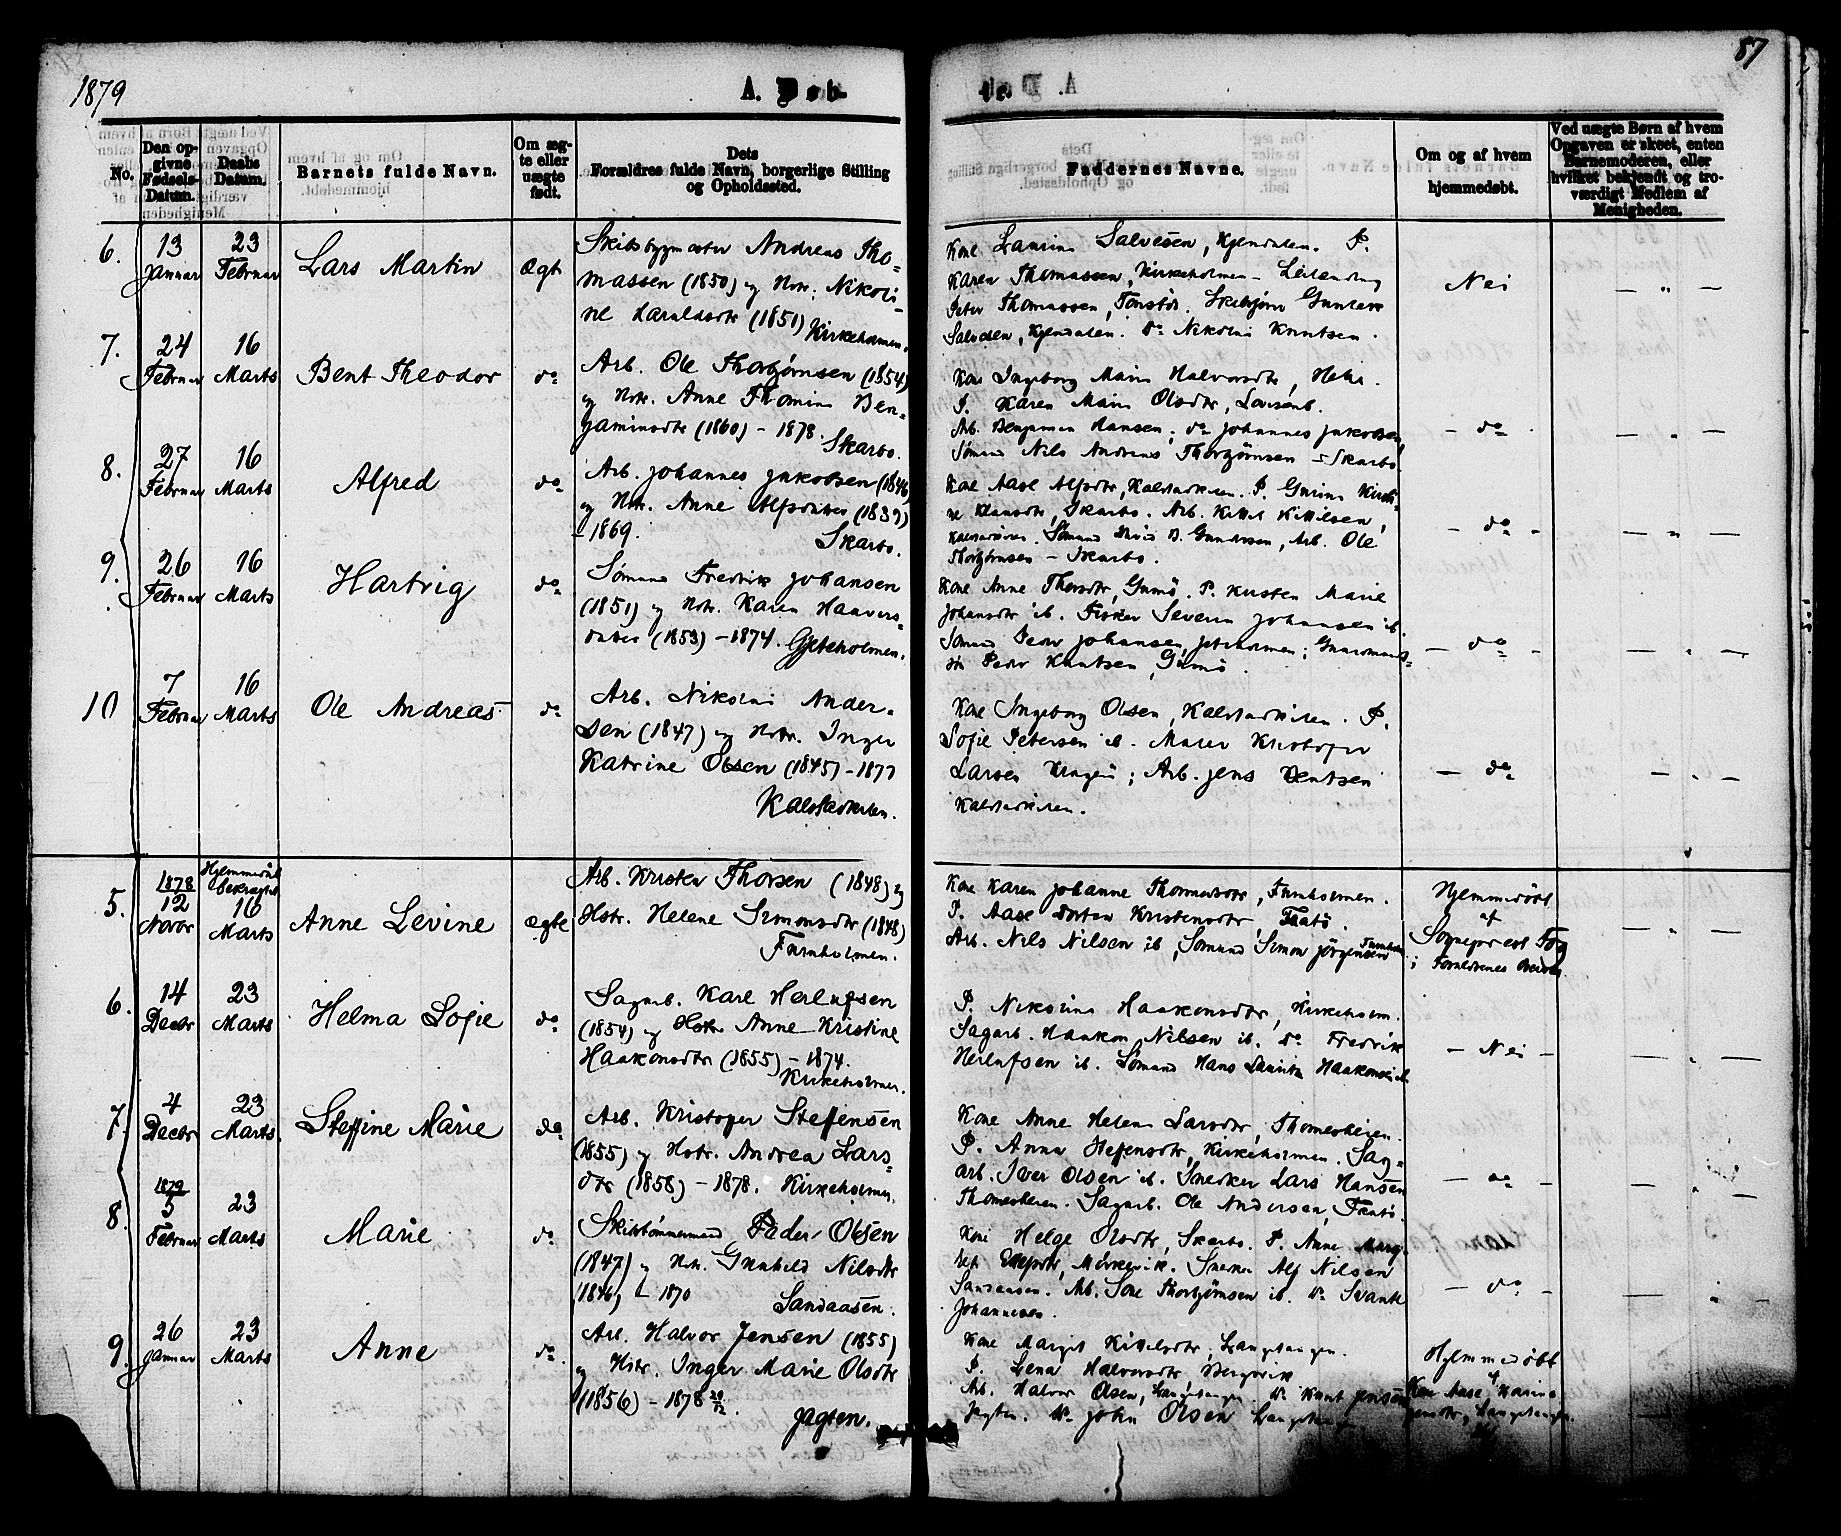 1879
A. Døb-
te.
87
No.
Den opgivne Fødsels-Datum.
Daabs Datum.
Barnets fulde Navn.
Om ægte eller uægte født.
Dets Forældres fulde Navn, borgerlige Stilling og Opholdssted.
Faddernes Navne.
Om og af hvem hjemmedøbt.
Ved uægte Børn af hvem Opgaven er skeet, enten Barnemoderen, eller hvilket bekjendt og troværdigt Medlem af Menigheden.
6.
13 Januar
23 Februar
Lars Martin
Ægt
Skibsbygmester Andreas Tho-
massen (1850) og Hstr. Nikoli-
ne Haraldsdtr (1851)
Kirkeholmen.
Kone Laurine Salvesen, Kjendalen. P.
Karen Thomassen, Kirkeholmen
Peter Thomassen, Skibstjøm
Salvesen, Kjendalen. do Nikolai Knutsen.
Nei
— " —
7.
24 Februar
16 Marts
Bent Theodor
do
Arb. Ole Thorbjørnsen (1854)
og Hstr. Anne Thomine Ben-
jaminsdtr (1860) - 1878.
Skarbo.
Kone Ingeborg Marie Halvorsdtr,
P. Karen Marie Olsdtr,
Arb. Benjamin Hansen; do Johannes Jakobsen,
Sømand Nils Andreas Thorbjørnsen - Skarbo.
— do —
— " —
8.
27 Februar
16 Marts
Alfred
do
Arb. Johannes Jakobsen (1846)
og Hstr. Anne Alfsdatter (1839)
- 1869.
Skarbo.
Kone Aase Alfsdtr, Kalstadkilen. P. Gurine Kirsti-
ne Hansdtr, Skarbo. Arb. Kittil Kittilsen,
Sømand B. Gundersen, Arb. Ole
Thorbjørnsen - Skarbo.
— do —
— " —
9.
26 Februar
16 Marts
Hartvig
do
Sømand Fredrik Johansen
(1851) og Hstr. Karen Haavors-
datter (1853) - 1874. Gjeteholmen.
Kone Anne Thorsdtr, Gumø. P. Kirsten Marie
Johansdtr ib. Fisker Severin Johansen ib.
Sømand Peder Johansen, Gjeteholmen; Gaardmands-
Peder Knutsen, Gumø.
— do —
— " —
10
7 Februar
16 Marts
Ole Andreas
do
Arb. Nikolai Ander-
sen (1847) og Hstr. Inger
Katrine Olsen (1845) - 1877
Kalstadkilen.
Kone Ingeborg Olsen, Kalstadkilen. P.
Sofie Petersen ib. Maler Kristofer
Larsen Kragerø; Arb. Jens Bentsen
Kalstadkilen.
— do —
— " —
5.
1878
12 Novbr
Hjemmedaab bekræftet
16 Marts
Anne Levine
Ægte
Arb. Kristen Thorsen (1848) og
Hstr. Helene Simonsdtr (1848)
Furuholmen.
Kone Karen Johanne Thormodsdtr, Furuholmen.
P. Aase Dorthea Kristensdtr, Tåtø.
Arb. Nils Nilsen ib, Sømand Simon Jørgensen Furuholm
Hjemmedøbt
af
Sogneprest
i Forældrenes
— " —
6.
14 Decbr
23 Marts
Helma Sofie
do
Sagarb. Karl Herlufsen
(1854) og Hstr. Anne Kristine
Haakonsdtr (1855) - 1874.
Kirkeholmen.
P. Nikoline Haakonsdtr, Kirkeholm.
Sagarb. Haakon Nilsen ib. do Fredrik
Herlufsen ib. Sømand Hans Lauritz Haakonsen ib.
— Nei —
— " —
7.
4 Decbr
23 Marts.
Steffine Marie
do
Arb. Kristofer Steffensen
(1855) og Hstr. Andrea Lars-
dtr (1858) - 1878. Kirkeholmen.
Kone Anne Helene Larsdtr, Thomesheien.
P. Anna Steffensdtr, Kirkeholmen. Sag-
arb. Iver Olsen ib. Snedker Lars Hansen
Thomesheien. Sagarb. Ole Andersen, Tåtø.
— do —
— " —
8.
1879
5 Februar
23 Marts
Marie
do
Skibstømmermand Peder Olsen
(1847) og Hstr. Gunhild Nilsdtr
(1846) - 1870
Sandaasen.
Kone Helge Olsdtr, Skarbo. P. Anne Marg-
ret Ellefsdtr, Mørkevik. Snedker Alf Nilsen
Sandaasen. Arb. Sone Thorbjørnsen ib. do Svante
Johannesen.
— do —
— " —
9.
26 Januar
23 Marts
Anne
do
Arb. Halvor Jensen (1855)
og Hstr. Inger Marie Olsdtr
(1856) - 1878 29/12.
Jagten.
Kone Margit Kittilsdtr, Langehangen.
P. Lena Halvorsdtr, Bergvik
Arb. Halvor Olsen, Langehangen do Knut Jensen
Jagten. do John Olsen Langehangen.
Hjemmedøbt
af
Kone Aase Karine
Jensdtr, Langehangen.